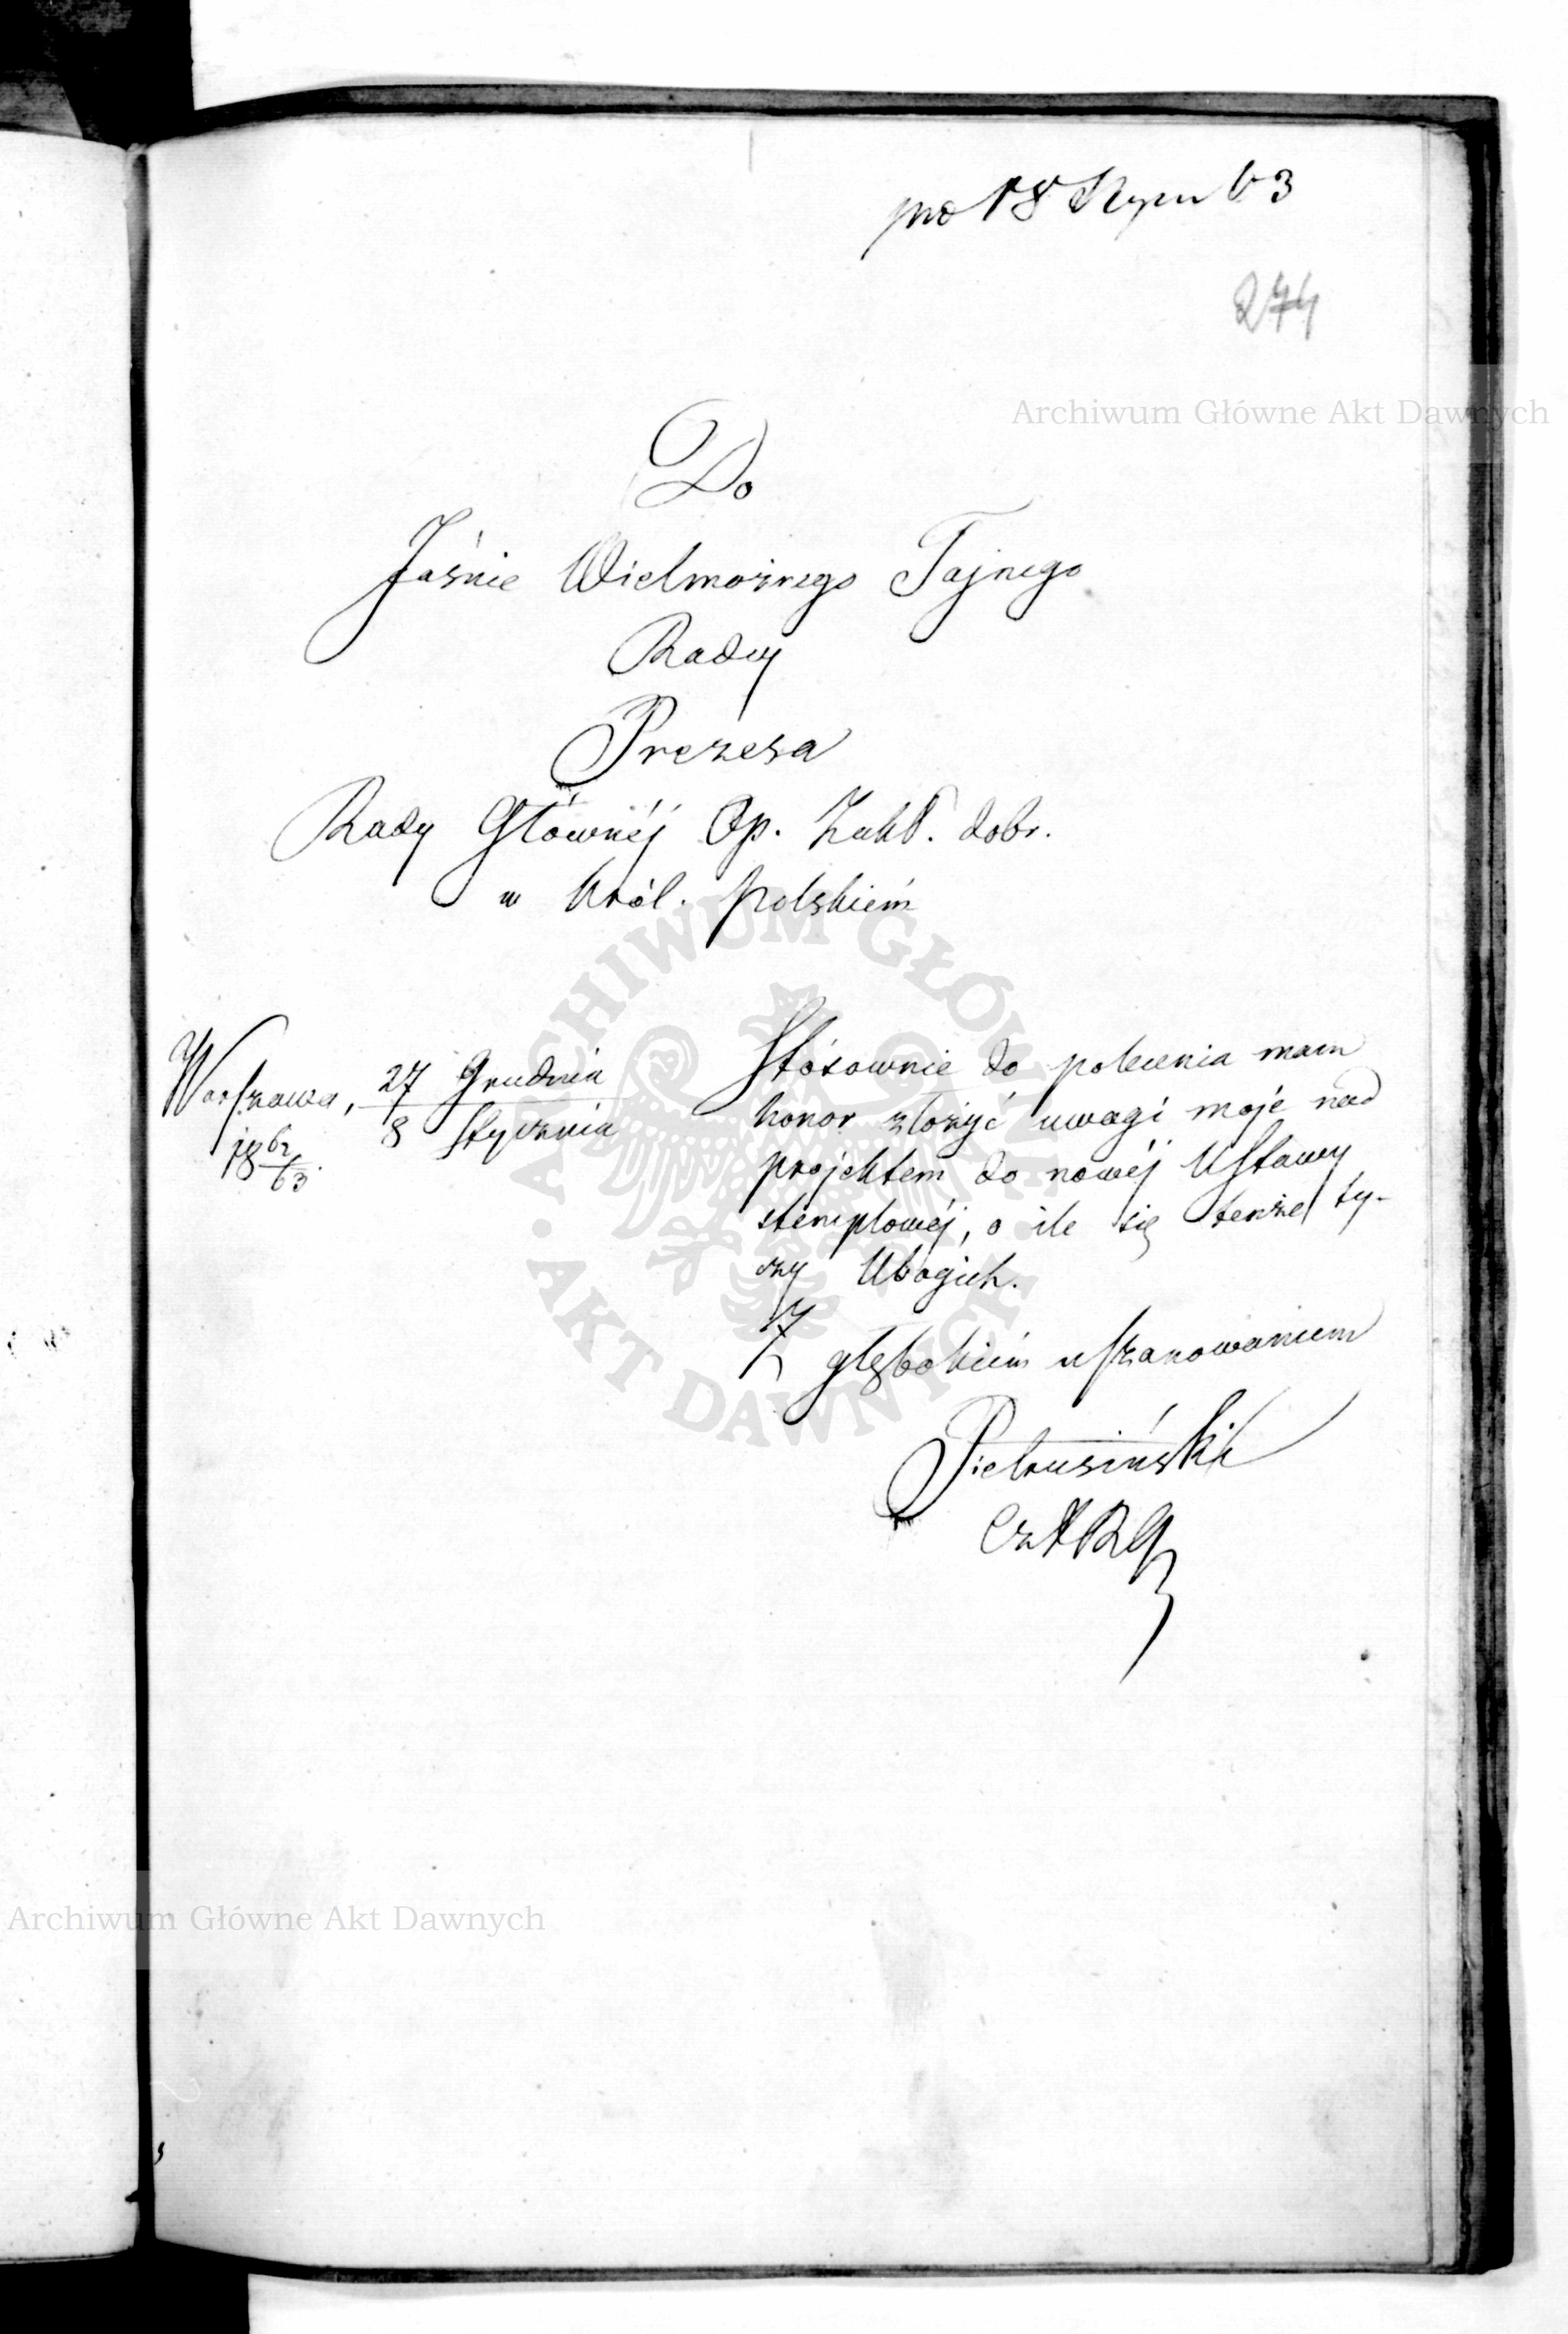 18 Stycz 63
274
Archiwum Główne Akt Dawnych
Do
Jaśnie Wielmożnego Tajnego
Radcy
Prezesa
Rady Głównéj Op. Zakł. dobr.
w Król. Polskiém
Warszawa, 27 Grudnia
8 Stycznia
1862/63.
Stósownie do polecenia mam
honor złożyć uwagi moje nad
projektem do nowéj Ustawy
stemplowéj, o ile się tenże ty-
czy Ubogich.
Z głębokiém uszanowaniem
Pietrusiński
Cz R G
ARCHIWUM GŁÓWNE
AKT DAWNYCH
Archiwum Główne Akt Dawnych